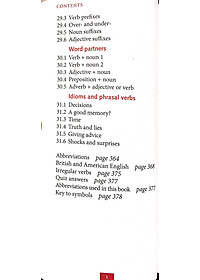 CONTENTS
29.3 Verb prefixes
29.4 Over- and under-
29.5 Noun suffixes
29.6 Adjective suffixes
Word partners
30.1 Verb + noun 1
30.2 Verb + noun 2
30.3 Adjective + noun
30.4 Preposition + noun
30.5 Adverb + adjective or verb
Idioms and phrasal verbs
31.1 Decisions
31.2 A good memory?
31.3 Time
31.4 Truth and lies
31.5 Giving advice
31.6 Shocks and surprises
Abbreviations page 364
British and American English page 368
Irregular verbs page 375
Quiz answers page 377
Abbreviations used in this book page 377
Key to symbols page 378